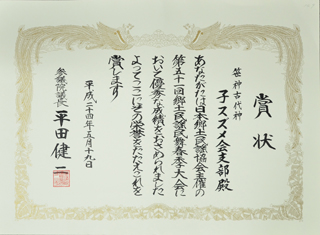 賞状
笹神古代神
子スズメ会支部殿
あなたがたは日本郷土民謡協会主催の
第五十一回郷土民謡民舞春季大会に
おいて優秀な成績をおさめられました
よってここにその栄誉をたたえこれを
賞します
平成二十四年五月十九日
参議院議長 平田健二